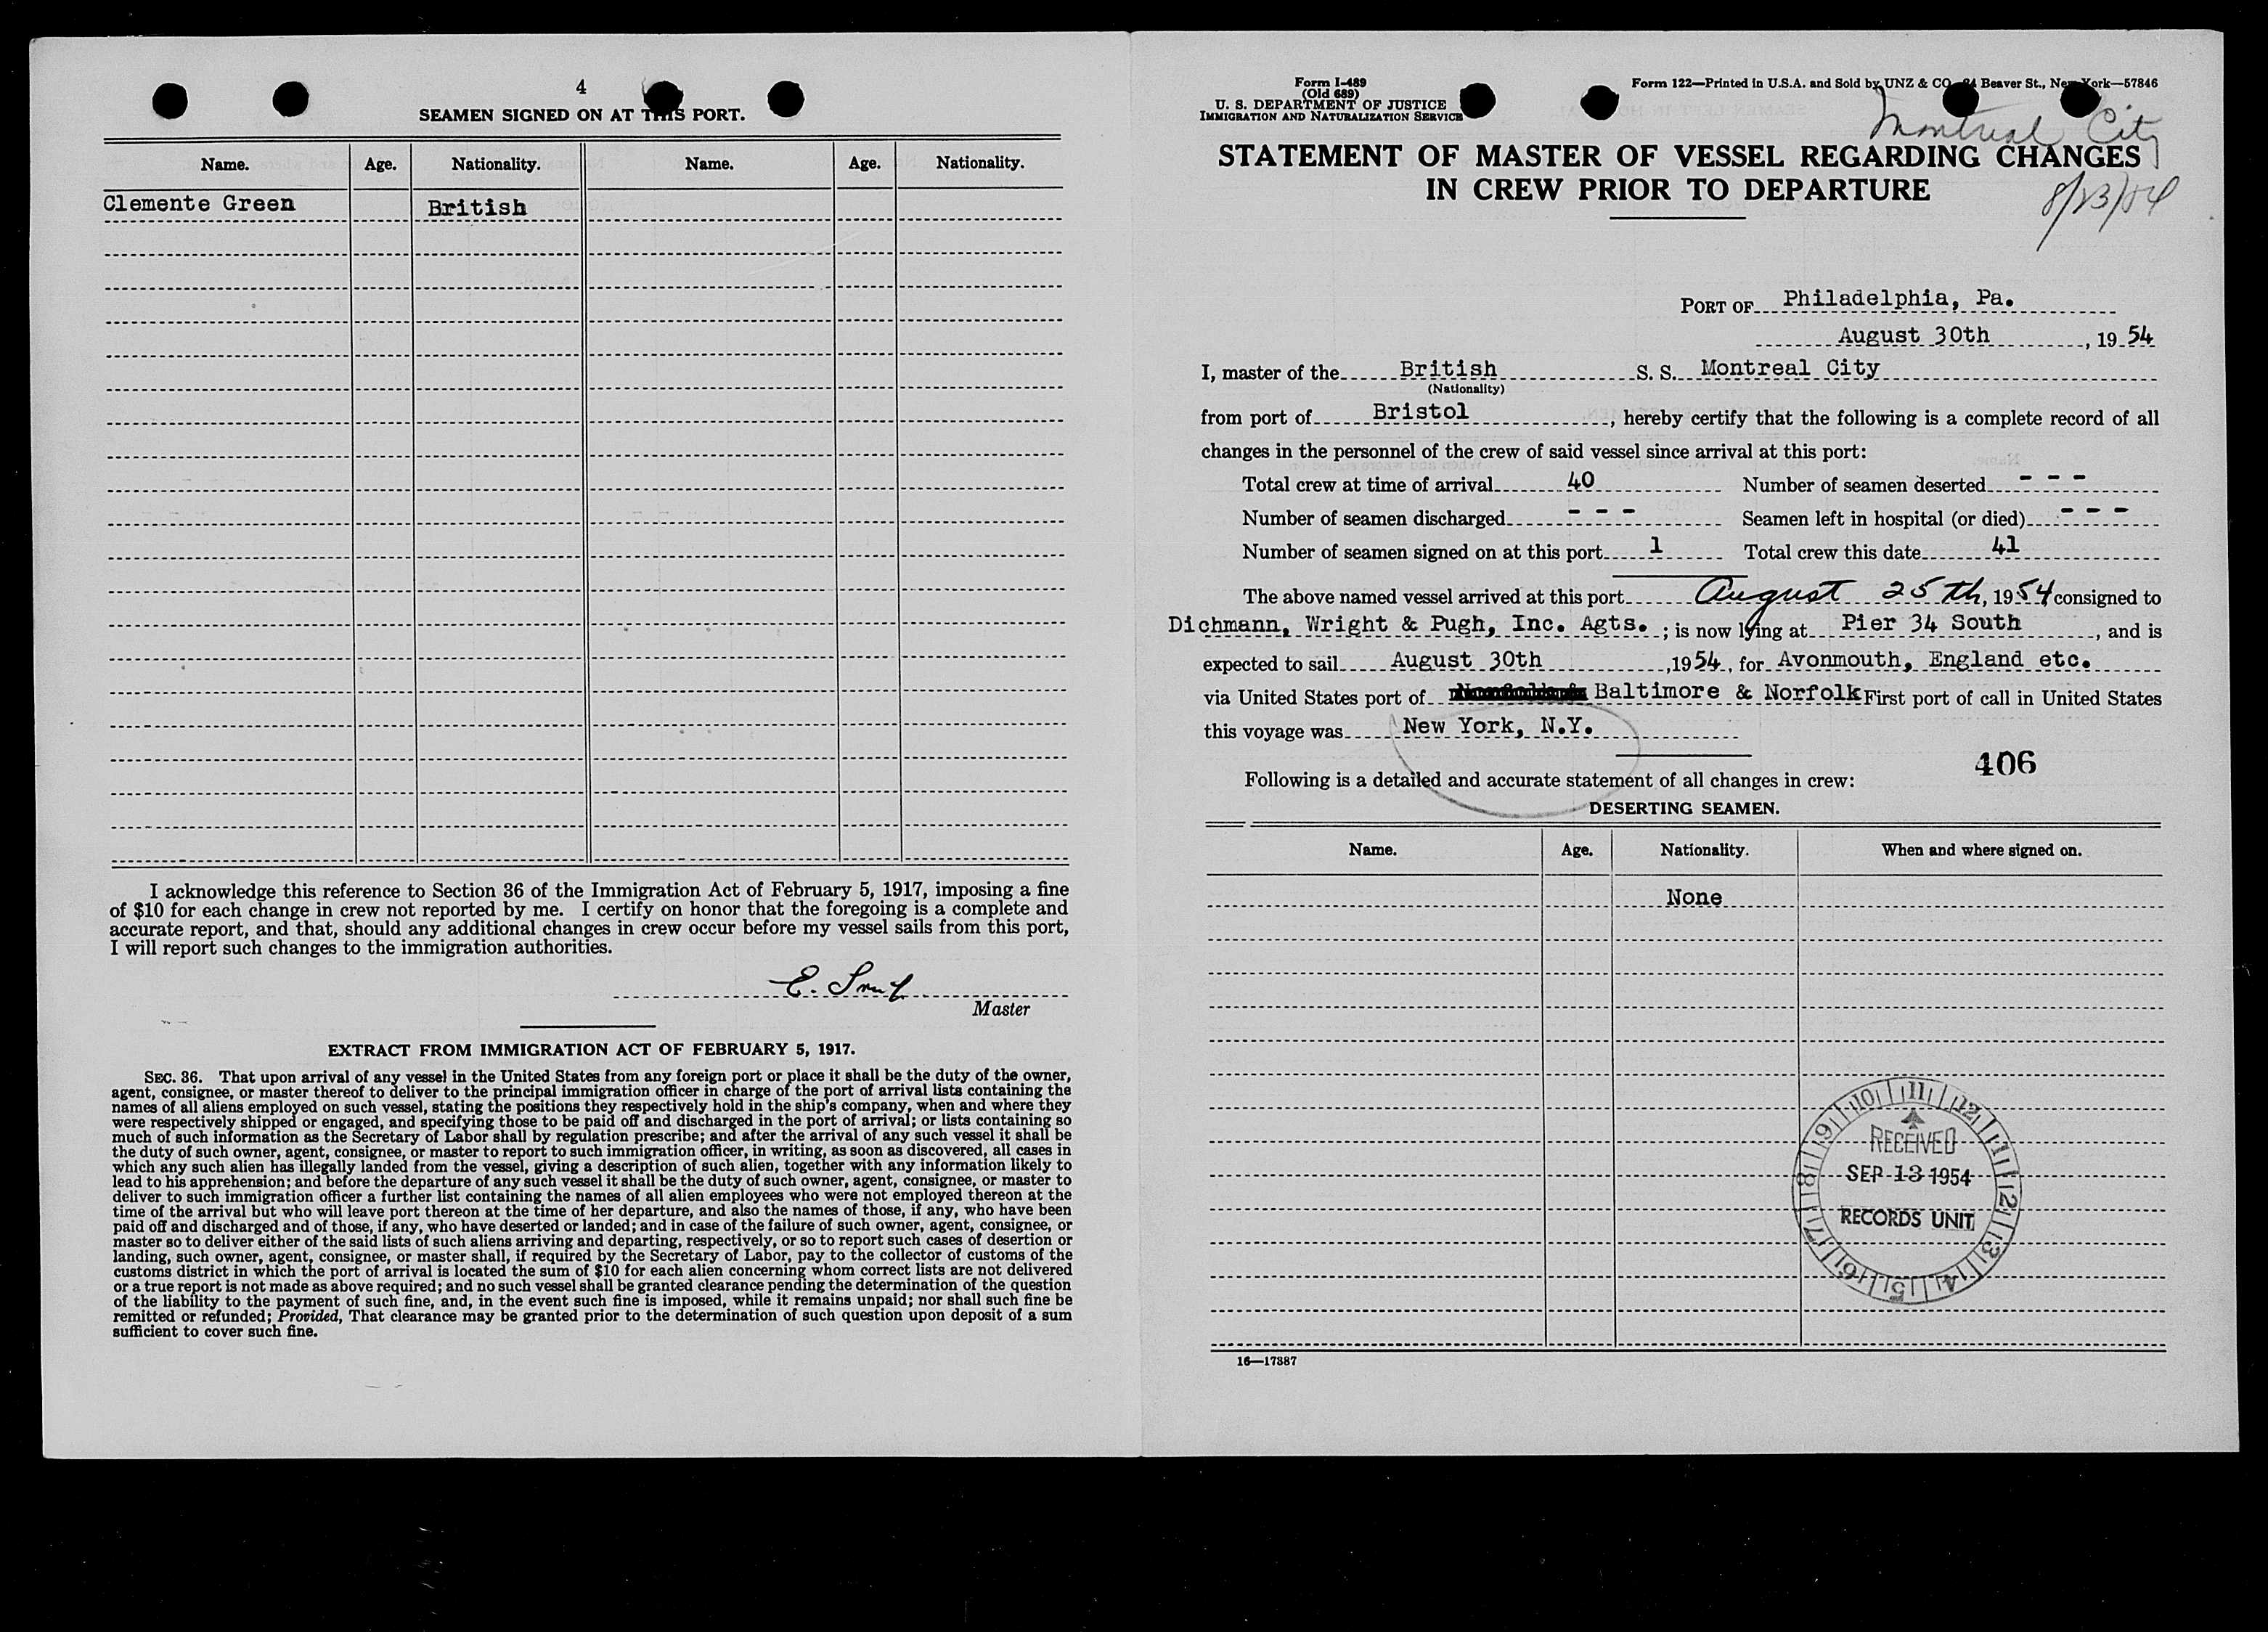 4
SEAMEN SIGNED ON AT THIS PORT.
Name. Age. Nationality. Name. Age. Nationality.
Clemente Green British
I acknowledge this reference to Section 36 of the Immigration Act of February 5, 1917, imposing a fine
of $10 for each change in crew not reported by me. I certify on honor that the foregoing is a complete and
accurate report, and that, should any additional changes in crew occur before my vessel sails from this port,
I will report such changes to the immigration authorities.
E.
Master
EXTRACT FROM IMMIGRATION ACT OF FEBRUARY 5, 1917.
SEC. 36. That upon arrival of any vessel in the United States from any foreign port or place it shall be the duty of the owner,
agent, consignee, or master thereof to deliver to the principal immigration officer in charge of the port of arrival lists containing the
names of all aliens employed on such vessel, stating the positions they respectively hold in the ship's company, when and where they
were respectively shipped or engaged, and specifying those to be paid off and discharged in the port of arrival; or lists containing so
much of such information as the Secretary of Labor shall by regulation prescribe; and after the arrival of any such vessel it shall be
the duty of such owner, agent, consignee, or master to report to such immigration officer, in writing, as soon as discovered, all cases in
which any such alien has illegally landed from the vessel, giving a description of such alien, together with any information likely to
lead to his apprehension; and before the departure of any such vessel it shall be the duty of such owner, agent, consignee, or master to
deliver to such immigration officer a further list containing the names of all alien employees who were not employed thereon at the
time of the arrival but who will leave port thereon at the time of her departure, and also the names of those, if any, who have been
paid off and discharged and of those, if any, who have deserted or landed; and in case of the failure of such owner, agent, consignee, or
master so to deliver either of the said lists of such aliens arriving and departing, respectively, or so to report such cases of desertion or
landing, such owner, agent, consignee, or master shall, if required by the Secretary of Labor, pay to the collector of customs of the
customs district in which the port of arrival is located the sum of $10 for each alien concerning whom correct lists are not delivered
or a true report is not made as above required; and no such vessel shall be granted clearance pending the determination of the question
of the liability to the payment of such fine, and, in the event such fine is imposed, while it remains unpaid; nor shall such fine be
remitted or refunded; Provided, That clearance may be granted prior to the determination of such question upon deposit of a sum
sufficient to cover such fine.
Form I-489
(Old 689)
U. S. DEPARTMENT OF JUSTICE
IMMIGRATION AND NATURALIZATION SERVICE
Form 122—Printed in U.S.A. and Sold by UNZ & CO. 24 Beaver St., New York—57846
Montreal City
STATEMENT OF MASTER OF VESSEL REGARDING CHANGES
IN CREW PRIOR TO DEPARTURE
8/23/54
PORT OF Philadelphia, Pa.
August 30th, 1954
I, master of the British S. S. Montreal City
(Nationality)
from port of Bristol, hereby certify that the following is a complete record of all
changes in the personnel of the crew of said vessel since arrival at this port:
Total crew at time of arrival 40 Number of seamen deserted - - -
Number of seamen discharged - - - Seamen left in hospital (or died) - - -
Number of seamen signed on at this port 1 Total crew this date 41
The above named vessel arrived at this port August 25th, 1954 consigned to
Dichmann, Wright & Pugh, Inc. Agts. ; is now lying at Pier 34 South, and is
expected to sail August 30th, 1954, for Avonmouth, England etc.
via United States port of Baltimore & Norfolk First port of call in United States
this voyage was New York, N.Y.
406
Following is a detailed and accurate statement of all changes in crew:
DESERTING SEAMEN.
Name. Age. Nationality. When and where signed on.
None
10 11 12 1 2 3 4 5 6 7 8 9
RECEIVED
SEP 13 1954
RECORDS UNIT
16—17887